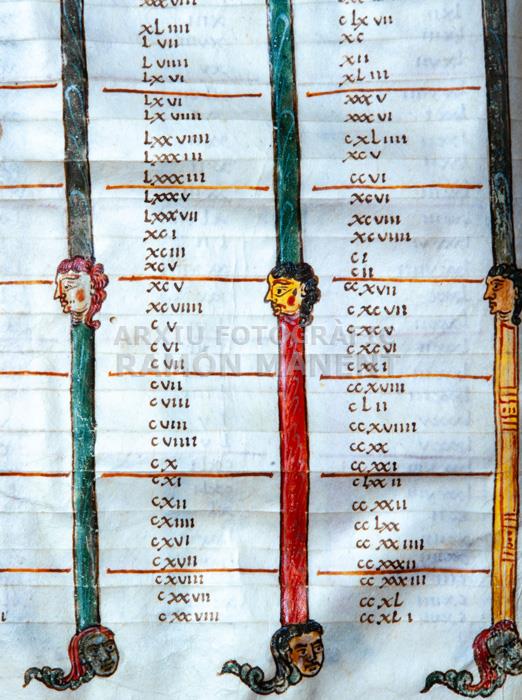 xL iiii
L vii
L viiii
Lx vi
Lx vi
Lx viiii
Lxx viiii
Lxxx iii
Lxxx iii
Lxxx v
Lxxx vii
xc i
xc iii
xc v
xc v
xc viiii
c v
c vi
c vii
c vii
c viii
c viii
c viiii
c x
c xi
c xii
c xiiii
c xvi
c xvii
c xviii
c xxvii
c xxviii
c Lxvii
xc
xii
xL iii
xxx v
xxx vi
c xL iiii
xc v
cc vi
xc vi
xc viii
xc viiii
c i
c ii
cc xvii
c xc vii
c xc v
c xc vi
cc xviii
c L ii
cc xviiii
cc xx
cc xxi
c Lxx ii
cc xxii
cc Lxx
cc xx iiii
cc xxxii
cc xxxiii
cc xL
cc xL i
ARXIU FOTOGRÀFIC
RAMÓN MANENT